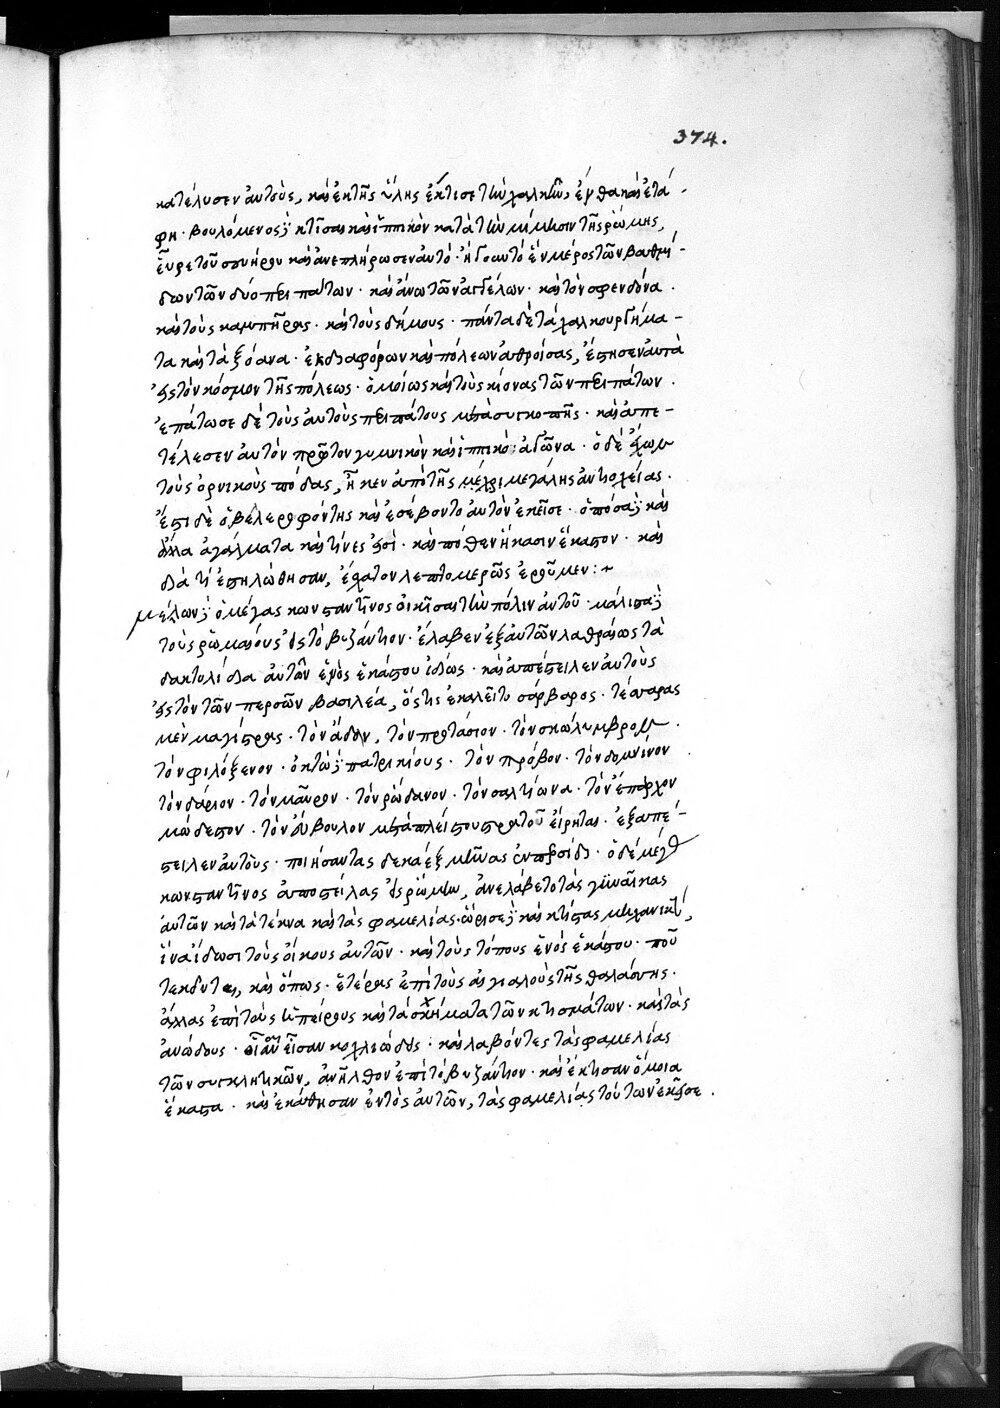 374.
κατέλυσεν αὐτοὺς, καὶ ἐκ τῆς ὕλης ἔκτισε τὴν χαλκῆν, ἔνθα καὶ ἐτά-
φη. βουλόμενος δὲ κτίσαι καὶ ἱππικὸν κατὰ τὴν μίμησιν τῆς ῥώμης,
εὗρε τοῦ σευήρου καὶ ἀνεπλήρωσεν αὐτό. ἤγουν τὸ ἓν μέρος τῶν βαθμί-
δων τῶν δύο περιπάτων. καὶ ἄνω τῶν ἀγγέλων. καὶ τὸν σφενδόνα.
καὶ τοὺς καμπτῆρας. καὶ τοὺς δήμους. πάντα δὲ τὰ χαλκουργήμα-
τα καὶ τὰ ξόανα. ἐκ διαφόρων καὶ πόλεων ἀθροίσας, ἔστησεν αὐτὰ
εἰς τὸν κόσμον τῆς πόλεως. ὁμοίως καὶ τοὺς κίονας τῶν περιπάτων.
ἐπάτωσε δὲ τοὺς αὐτοὺς περιπάτους μετὰ συγκοπῆς. καὶ ἀπε-
τέλεσεν αὐτὸν πρῶτον γυμνικὸν καὶ ἱππικὸν ἀγῶνα. ὁ δὲ ἔχων
τοὺς ὀρνικοὺς πόδας, ἧκεν ἀπὸ τῆς μεγάλης ἀντιοχείας.
ἔστι δὲ ὁ βελεροφόντης καὶ ἐσέβοντο αὐτὸν ἐκεῖσε. ὁπόσα δὲ καὶ
ἄλλα ἀγάλματα καὶ τίνες εἰσί. καὶ πόθεν ἥκασιν ἕκαστον. καὶ
διὰ τί ἐστηλώθησαν, ἔσχατον λεπτομερῶς ἐροῦμεν:~
μέλλων δὲ ὁ μέγας κωνσταντῖνος οἰκῆσαι τὴν πόλιν αὐτοῦ μάλιστα δὲ
τοὺς ῥωμαίους εἰς τὸ βυζάντιον. ἔλαβεν ἐξ αὐτῶν λαθραίως τὰ
δακτυλίδια αὐτῶν ἑνὸς ἑκάστου ἰδίως. καὶ ἀπέστειλεν αὐτοὺς
εἰς τὸν τῶν περσῶν βασιλέα, ὅστις ἐκαλεῖτο σάρβαρος. τέσσαρας
μὲν μαγίστρους. τὸν ἄδδαν, τὸν προτάσιον. τὸν σκώλυμβρον.
τὸν φιλόξενον. ὀκτὼ δὲ πατρικίους. τὸν πρόβον. τὸν δομνίνον
τὸν δάριον. τὸν μαῦρον. τὸν ῥώδανον. τὸν σαλτίωνα. τὸν ἔπαρχον
μώδεστον. τὸν εὔβουλον μετὰ πλείστου στρατοῦ εἴρηται. ἐξαπέ-
στειλεν αὐτούς. ποιήσαντας δεκαὲξ μῆνας ἐν περσίδι. ὁ δὲ μέγας
κωνσταντῖνος ἀποστείλας εἰς ῥώμην, ἀνελάβετο τὰς γυναῖκας
αὐτῶν καὶ τὰ τέκνα καὶ τὰς φαμελίας. ὥρισε δὲ καὶ κτίστας μηχανικοὺς,
ἵνα ἴδωσι τοὺς οἴκους αὐτῶν. καὶ τοὺς τόπους ἑνὸς ἑκάστου. ποῦ
καὶ ὅπως. ἑτέρας ἐπὶ τοὺς αἰγιαλοὺς τῆς θαλάσσης.
ἄλλας ἐπὶ τοὺς ἠπείρους καὶ τὰ σχήματα τῶν κτισμάτων. καὶ τὰς
ἀνώδους. οἷαι εἶσαν κοχλιώδεις. καὶ λαβόντες τὰς φαμελίας
τῶν συγκλητικῶν, ἀνῆλθον ἐπὶ τὸ βυζάντιον. καὶ ἔκτησαν ὅμοια
ἕκαστα. καὶ ἐκάθησαν ἐντὸς αὐτῶν, τὰς φαμελίας τούτων ἐκεῖσε.